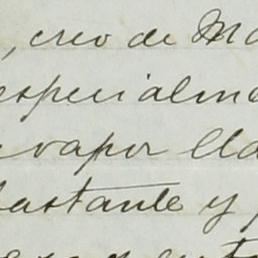 , creo de Ma
especialme
vapor lla
bastante y